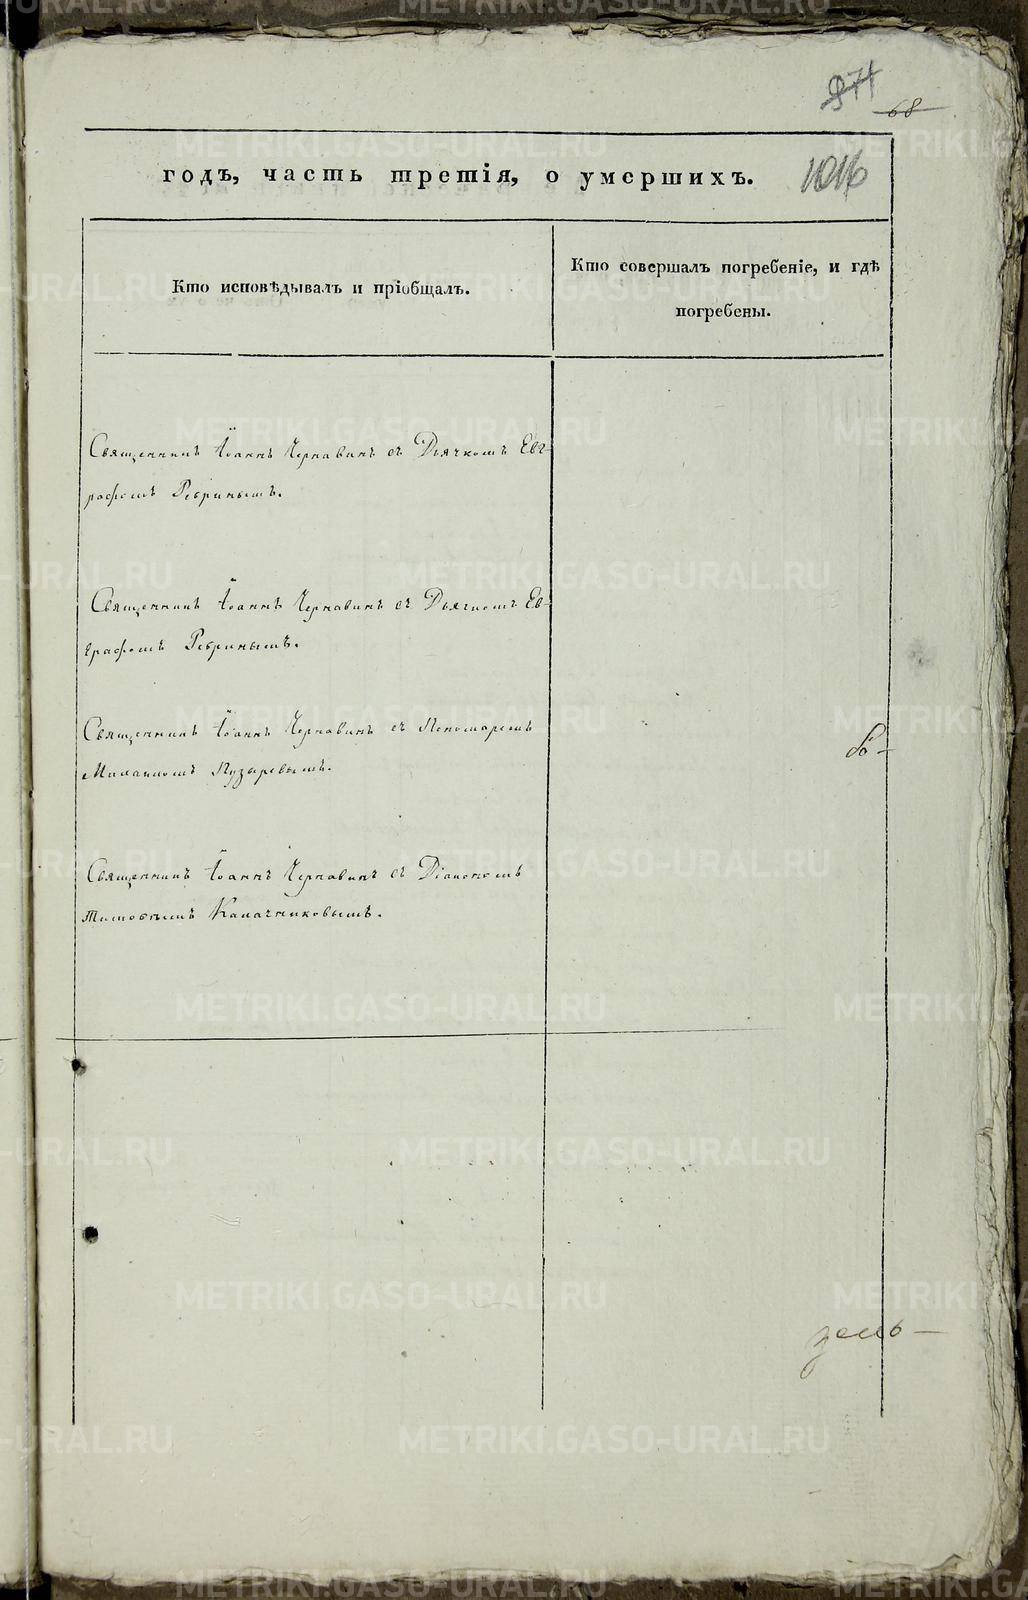 871
68
годъ, часть третія, о умершихъ.
1016
Кто исповѣдывалъ и пріобщалъ.
Кто совершалъ погребеніе, и гдѣ
погребены.
Священникъ Іоаннъ Чернавинъ съ Дьячкомъ Евг-
рафомъ Ребринымъ.
Священникъ Іоаннъ Чернавинъ съ Дьячкомъ Ев-
графомъ Ребринымъ.
Священникъ Іоаннъ Чернавинъ съ Пономаремъ
Пузыревымъ.
Священникъ Іоаннъ Чернавинъ съ Діакономъ
Калачниковымъ.
METRIKI.GASO-URAL.RU